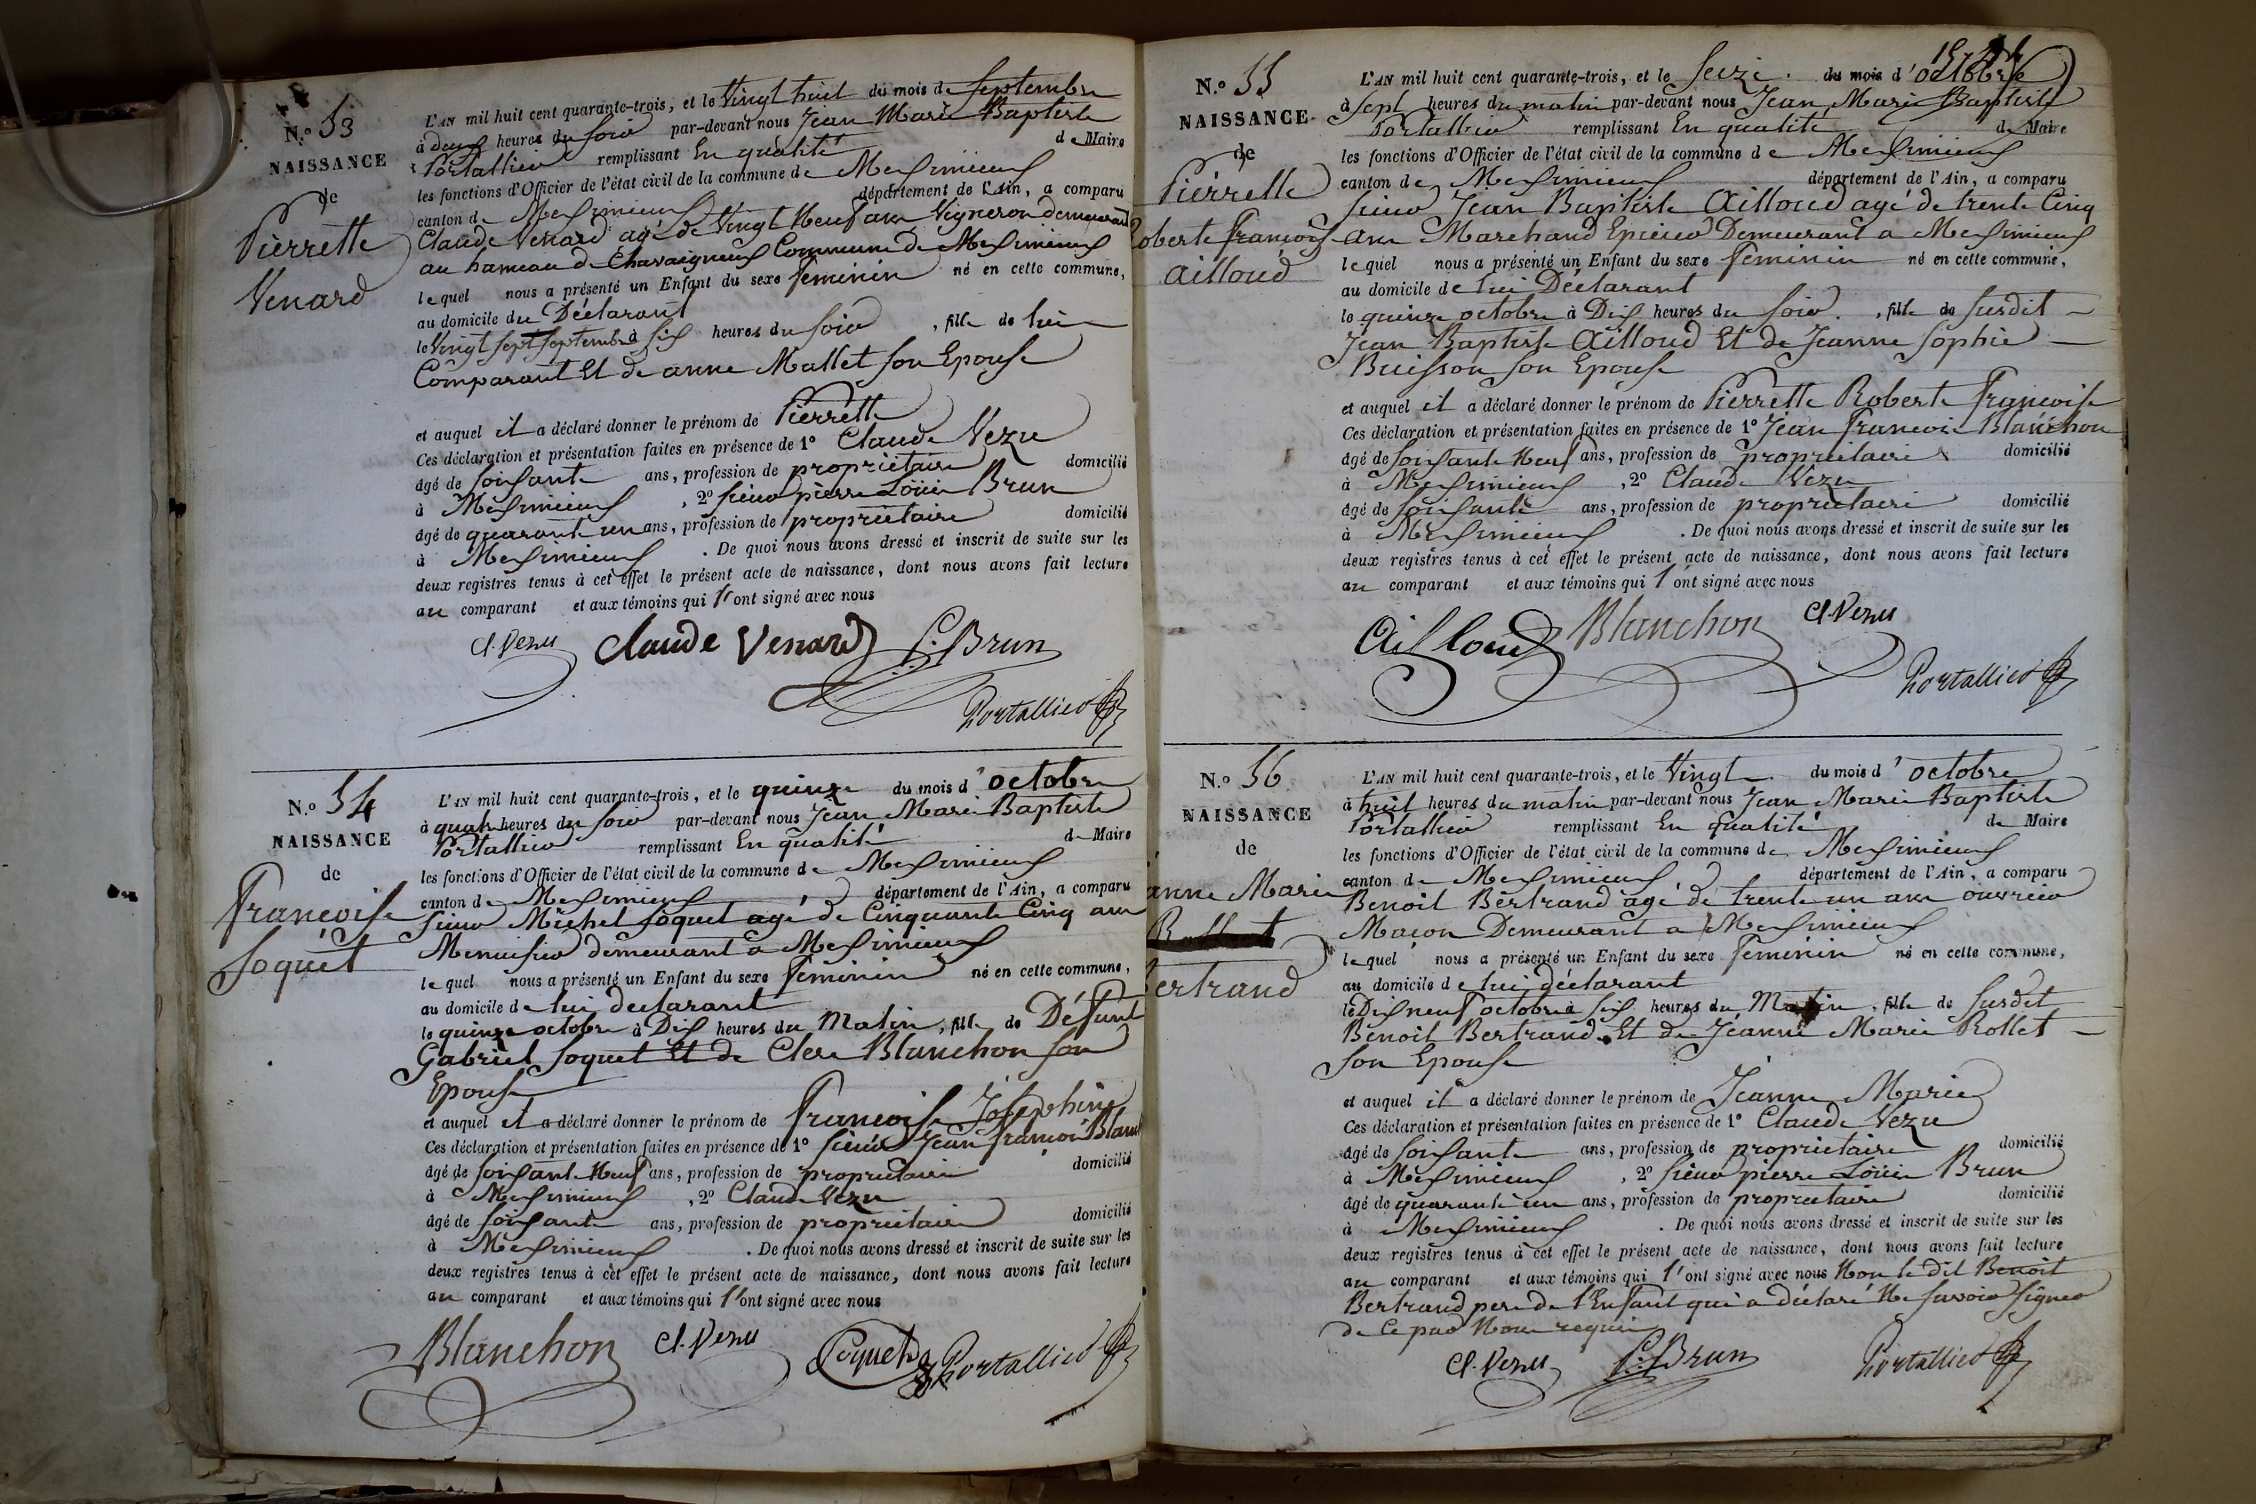 N.o 53
NAISSANCE
de
Pierrette
Venard
L'AN mil huit cent quarante-trois, et le Vingt huit du mois de Septembre
à deux heures du soir par-devant nous Jean Marie Baptiste
Portallier remplissant En qualité de Maire
les fonctions d'Officier de l'état civil de la commune de Meximieux
canton de Meximieux département de l'Ain, a comparu
Claude Venard agé de Vingt Neuf ans Vigneron demeurant
au hameau de Chavaigneux Commune de Meximieux
lequel nous a présenté un Enfant du sexe feminin né en cette commune,
au domicile du Déclarant
le Vingt sept septembre à six heures du soir, fille de lui
Comparant Et de anne Mallet son Epouse
et auquel il a déclaré donner le prénom de Pierrette
Ces déclaration et présentation faites en présence de 1º Claude Vezu
âgé de soixante ans, profession de propriétaire domicilié
à Meximieux, 2º sieur pierre Loüis Brun
âgé de quarante un ans, profession de propriétaire domicilié
à Meximieux. De quoi nous avons dressé et inscrit de suite sur les
deux registres tenus à cet effet le présent acte de naissance, dont nous avons fait lecture
au comparant et aux témoins qui l'ont signé avec nous
Cl. Vezu Claude Venard P. L. Brun
Portallier
N.o 54
NAISSANCE
de
Françoise
Soquet
L'AN mil huit cent quarante-trois, et le quinze du mois d'octobre
à quatre heures du soir par-devant nous Jean Marie Baptiste
Portallier remplissant En qualité de Maire
les fonctions d'Officier de l'état civil de la commune de Meximieux
canton de Meximieux département de l'Ain, a comparu
sieur Michel Soquet agé de Cinquante Cinq ans
Menuisier demeurant a Meximieux
lequel nous a présenté un Enfant du sexe feminin né en cette commune,
au domicile de lui declarant
le quinze octobre à Dix heures du Matin, fille de Défunt
Gabriel Soquet Et de Clere Blanchon son
Epouse
et auquel il a déclaré donner le prénom de Françoise Joséphine
Ces déclaration et présentation faites en présence de 1º sieur Jean françois Blanchon
âgé de soixante Neuf ans, profession de propriétaire domicilié
à Meximieux, 2º Claude Vezu
âgé de soixante ans, profession de propriétaire domicilié
à Meximieux. De quoi nous avons dressé et inscrit de suite sur les
deux registres tenus à cet effet le présent acte de naissance, dont nous avons fait lecture
au comparant et aux témoins qui l'ont signé avec nous
Blanchon Cl. Vezu Soquet Portallier
N.o 55
NAISSANCE
de
Pierrette
Roberte françoise
Ailloud
L'AN mil huit cent quarante-trois, et le Seize du mois d'octobre
à sept heures du matin par-devant nous Jean Marie Baptiste
Portallier remplissant En qualité de Maire
les fonctions d'Officier de l'état civil de la commune de Meximieux
canton de Meximieux département de l'Ain, a comparu
sieur Jean Baptiste Ailloud agé de trente Cinq
ans Marchand Epicier Demeurant a Meximieux
lequel nous a présenté un Enfant du sexe feminin né en cette commune,
au domicile de lui Déclarant
le quinze octobre à Dix heures du soir, fille de susdit
Jean Baptiste Ailloud Et de Jeanne Sophie
Buisson son Epouse
et auquel il a déclaré donner le prénom de Pierrette Roberte françoise
Ces déclaration et présentation faites en présence de 1º Jean françois Blanchon
âgé de soixante Neuf ans, profession de propriétaire domicilié
à Meximieux, 2º Claude Vezu
âgé de soixante ans, profession de propriétaire domicilié
à Meximieux. De quoi nous avons dressé et inscrit de suite sur les
deux registres tenus à cet effet le présent acte de naissance, dont nous avons fait lecture
au comparant et aux témoins qui l'ont signé avec nous
Ailloud Blanchon Cl. Vezu
Portallier
N.o 56
NAISSANCE
de
anne Marie
ertrand
L'AN mil huit cent quarante-trois, et le Vingt du mois d'octobre
à huit heures du matin par-devant nous Jean Marie Baptiste
Portallier remplissant En qualité de Maire
les fonctions d'Officier de l'état civil de la commune de Meximieux
canton de Meximieux département de l'Ain, a comparu
Benoit Bertrand agé de trente un ans ouvrier
Maçon Demeurant a Meximieux
lequel nous a présenté un Enfant du sexe feminin né en cette commune,
au domicile de lui déclarant
le Dix neuf octobre à six heures du Matin, fille de susdit
Benoit Bertrand Et de Jeanne Marie Rollet
son Epouse
et auquel il a déclaré donner le prénom de Jeanne Marie
Ces déclaration et présentation faites en présence de 1º Claude Vezu
âgé de soixante ans, profession de propriétaire domicilié
à Meximieux, 2º sieur pierre Loüis Brun
âgé de quarante un ans, profession de propriétaire domicilié
à Meximieux. De quoi nous avons dressé et inscrit de suite sur les
deux registres tenus à cet effet le présent acte de naissance, dont nous avons fait lecture
au comparant et aux témoins qui l'ont signé avec nous Non le dit Benoit
Bertrand pere de l'Enfant qui a déclaré Ne savoir signer
de Ce par Nous requis
Cl. Vezu P. L. Brun Portallier